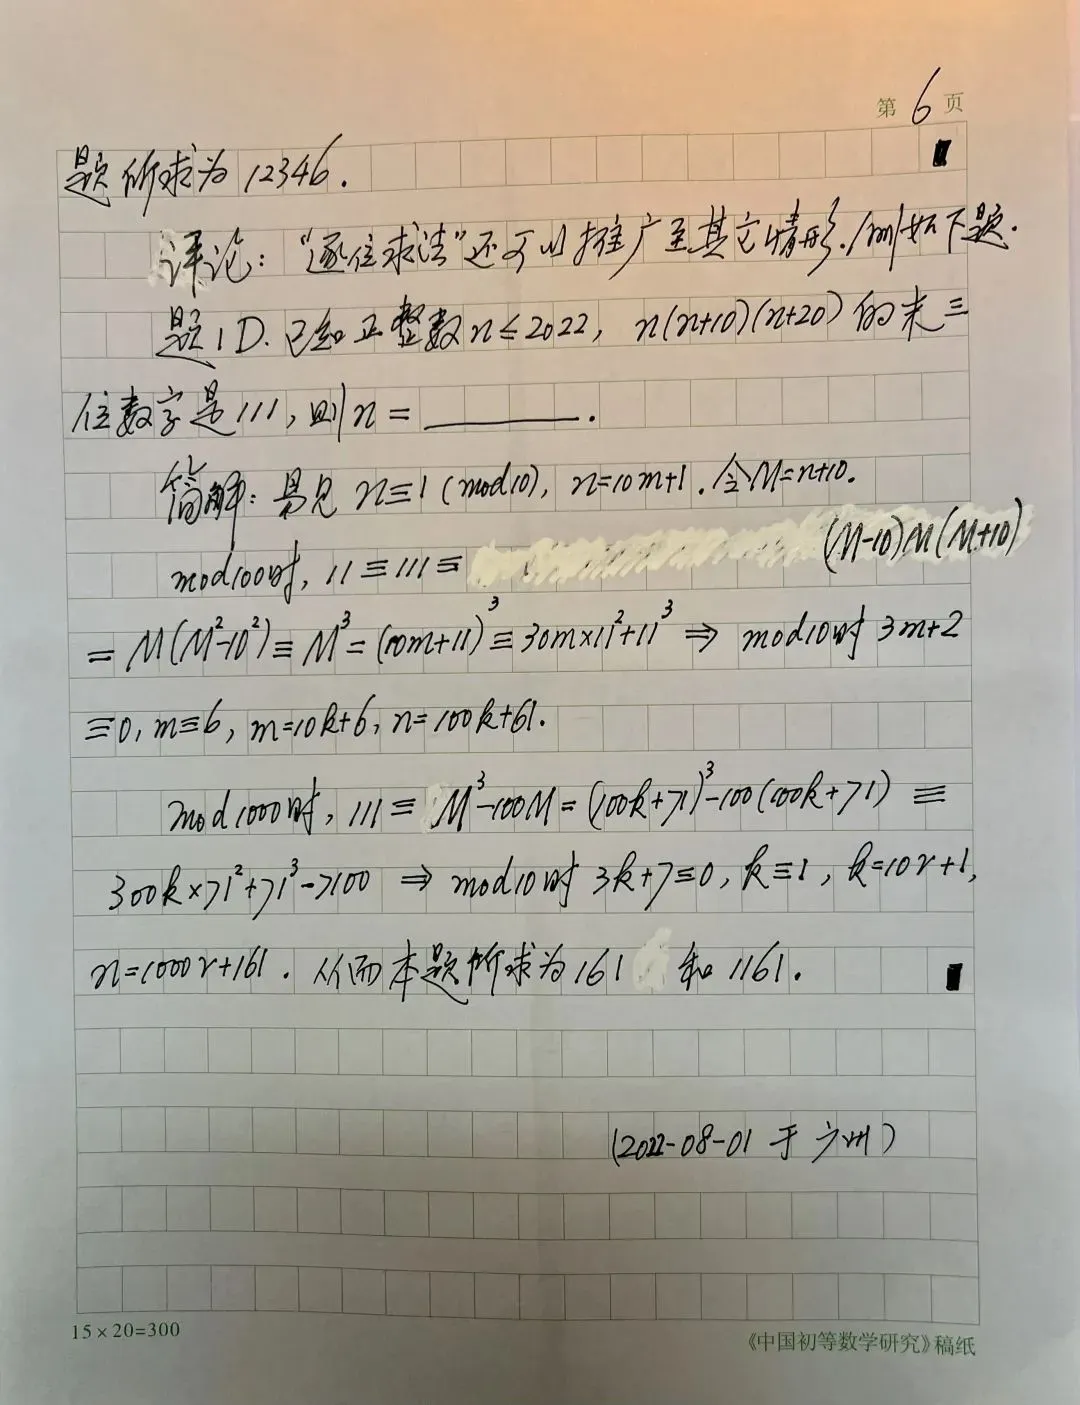 第 6 页
题所求为 12346.
评论: “逐位求法”还可以推广至其它情形.例如下题.
题1D.已知正整数n≤2022, n(n+10)(n+20)的末三
位数字是111,则n=________.
简解:易见 n≡1(mod10), n=10m+1.令M=n+10.
mod100时, 11≡111≡(M-10)M(M+10)
=M(M²-10²)≡M³=(10m+11)³≡30m×11²+11³⇒ mod10时 3m+2
≡0, m≡6, m=10k+6, n=100k+61.
mod1000时, 111≡M³-100M=(100k+71)³-100(100k+71)≡
300k×71²+71³-7100 ⇒ mod10时 3k+7≡0, k≡1, k=10r+1,
n=1000r+161. 从而本题所求为161 和 1161.
(2022-08-01 于广州)
15×20=300
《中国初等数学研究》稿纸